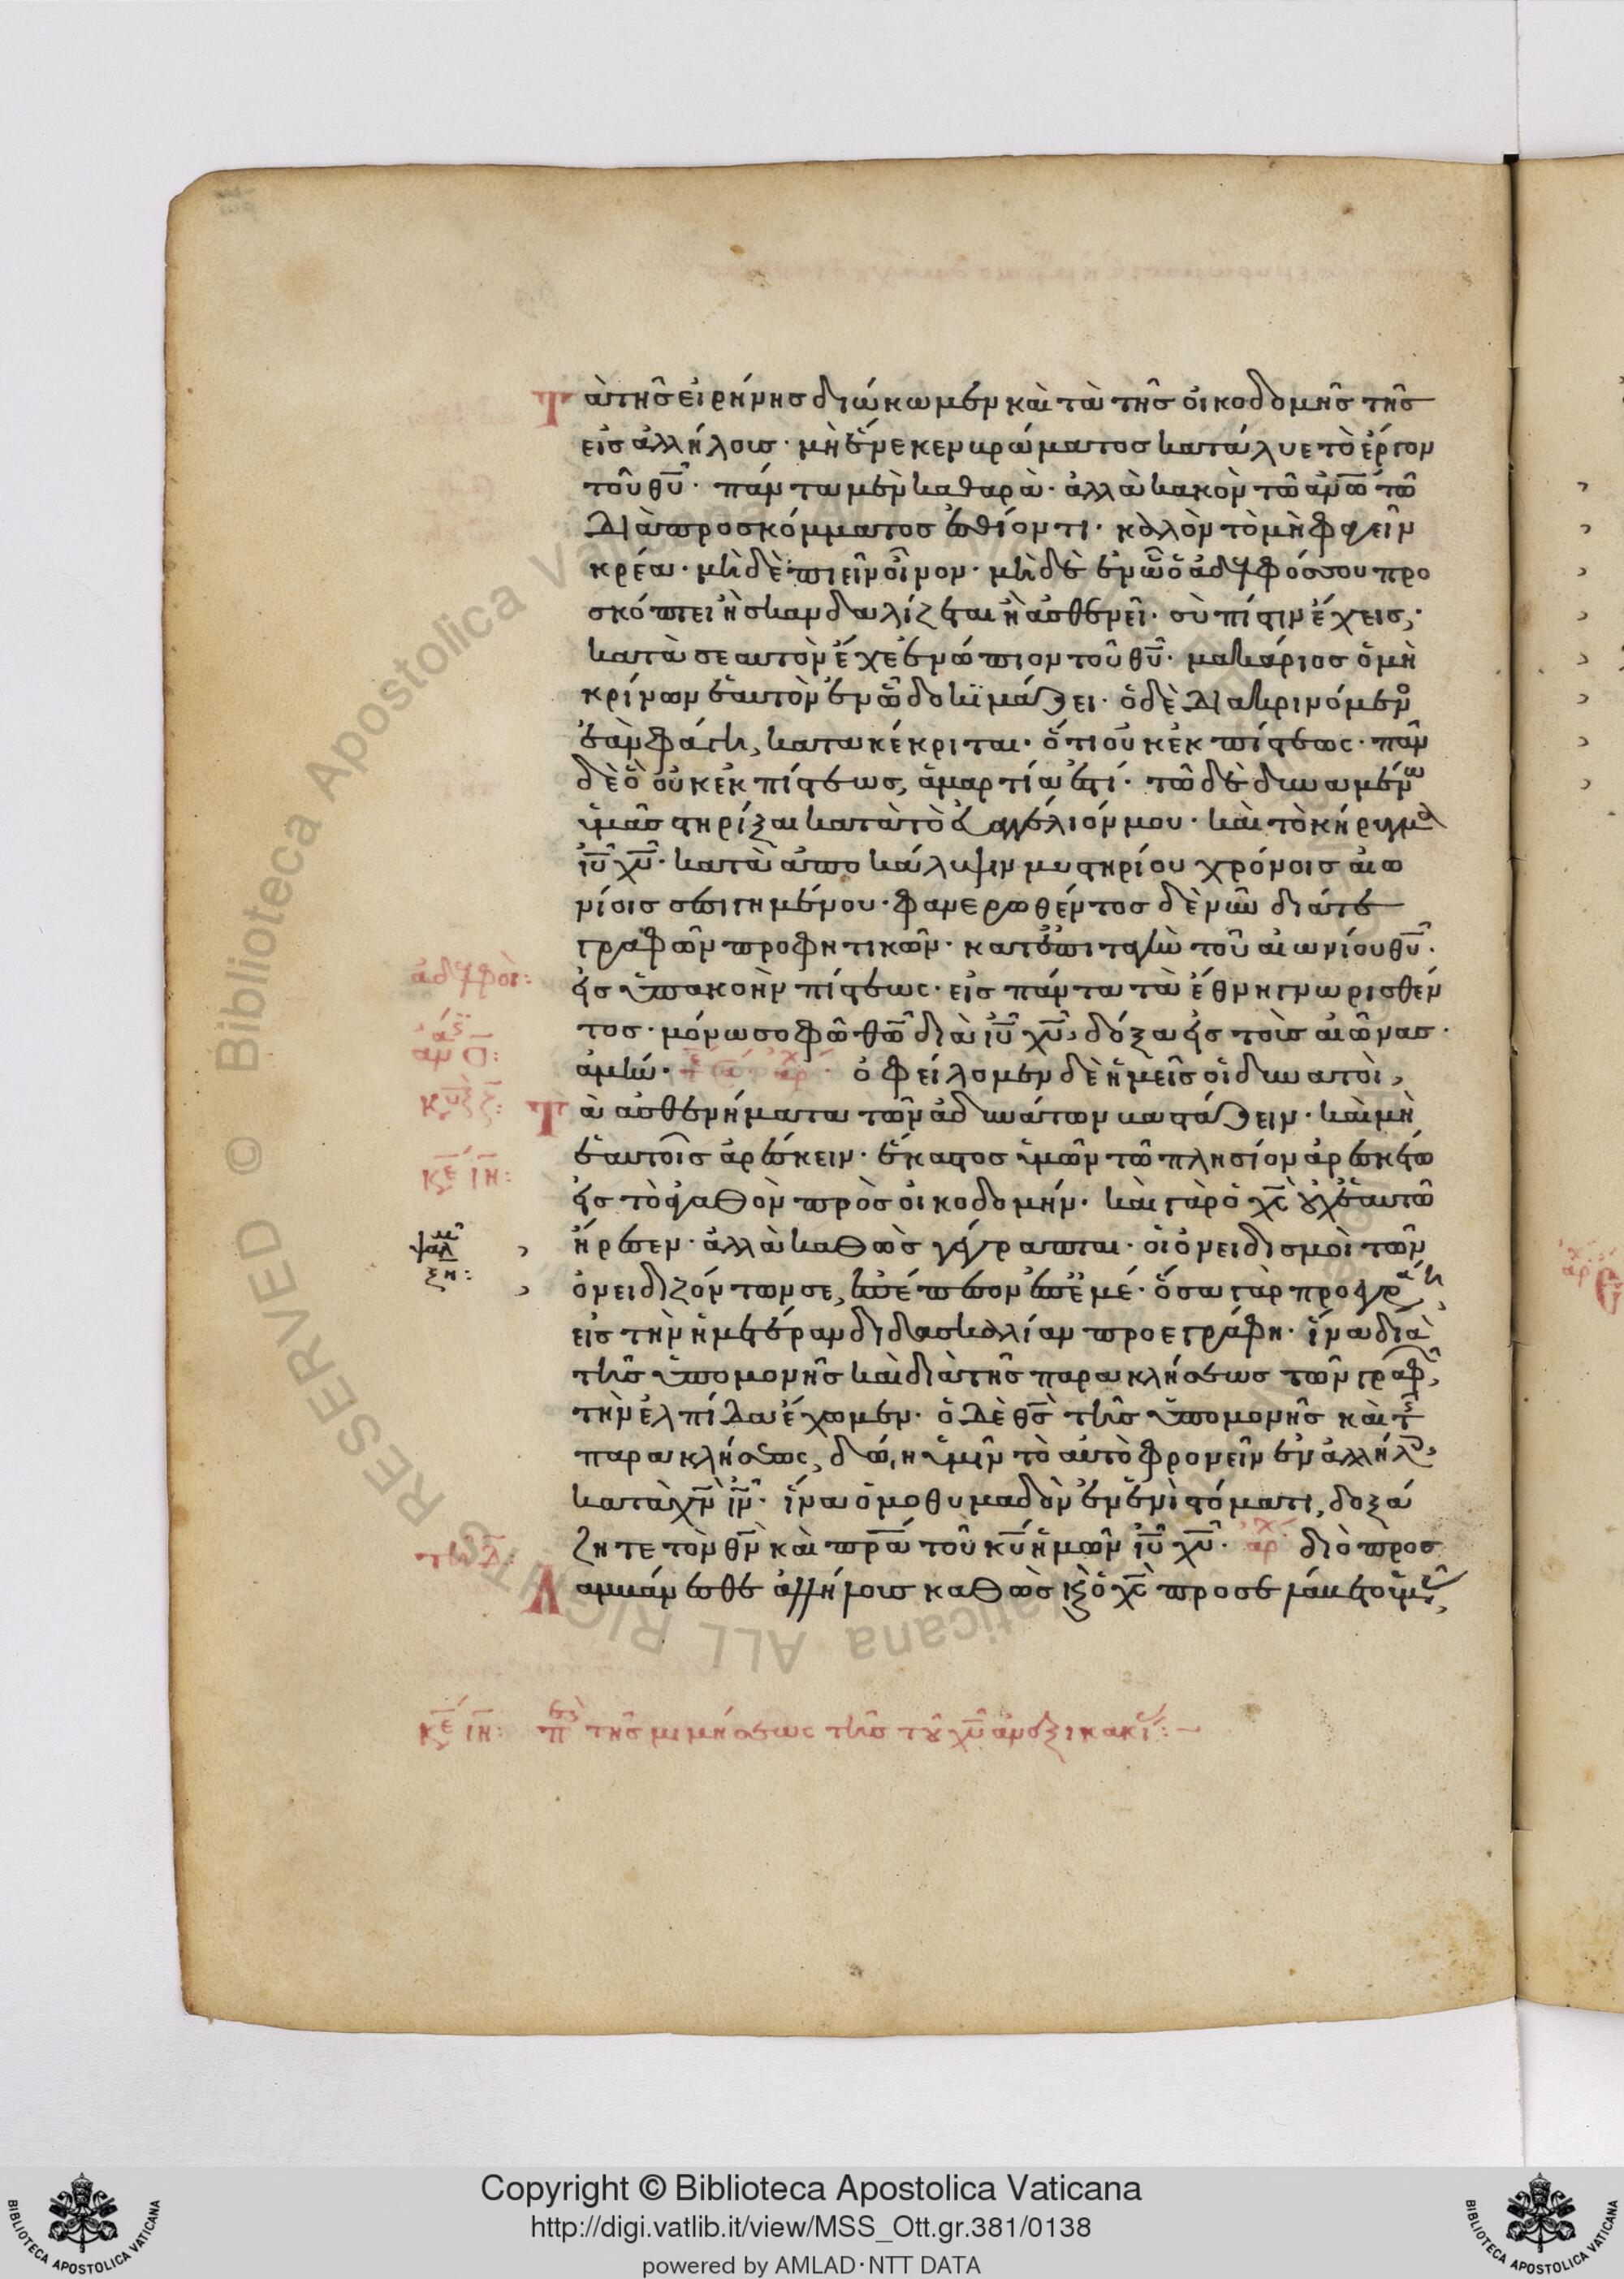 Τὰ τῆς εἰρήνης διώκωμεν καὶ τὰ τῆς οἰκοδομῆς τῆς
εἰς ἀλλήλους· μὴ ἕνεκεν βρώματος κατάλυε τὸ ἔργον
τοῦ θυ· πάντα μὲν καθαρὰ· ἀλλὰ κακὸν τῶ ανω τῶ
διὰ προσκόμματος ἐσθίοντι· καλὸν τὸ μὴ φαγεῖν
κρέα· μηδὲ πιεῖν οἶνον· μηδὲ ἐν ὧ ὁ ἀδελφός σου προ
σκόπτει ἢ σκανδαλίζεται ἢ ἀσθενεῖ· σὺ πίστιν ἔχεις,·
κατὰ σεαυτὸν ἔχε ἐνώπιον τοῦ θυ· μακάριος ὁ μὴ
κρίνων ἑαυτὸν ἐν ὧ δοκιμάζει· ὁ δὲ διακρινόμενο
ἐὰν φάγη, κατακέκριται· ὅτι οὐκ ἐκ πίστεως· πᾶν
δὲ ὃ οὐκ ἐκ πίστεως, ἁμαρτία ἐστί· τῶ δὲ δυναμένω
ὑμᾶς στηρίξαι κατὰ τὸ εὐαγγέλιόν μου· καὶ τὸ κήρυγμα
ιυ χυ· κατὰ ἀποκάλυψιν μυστηρίου χρόνοις αἰω
νίοις σεσιγημένου· φανερωθέντος δὲ νῦν διά τε
γραφῶν προφητικῶν· κατ' ἐπιταγὴν τοῦ αἰωνίου θυ·
εἰς ὑπακοὴν πίστεως· εἰς πάντα τὰ ἔθνη γνωρισθέν
τος· μόνω σοφῶ θω διὰ ιυ χυ, δόξα εἰς τοὺς αἰῶνας·
ἀμήν· ὀφείλομεν δὲ ἡμεῖς οἱ δυνατοὶ,
Τὰ ἀσθενήματα τῶν ἀδυνάτων βαστάζειν· καὶ μὴ
ἑαυτοῖς ἀρέσκειν· ἕκαστος ὑμῶν τῶ πλησίον ἀρεσκέτω
εἰς τὸ ἀγαθὸν πρὸς οἰκοδομήν· καὶ γὰρ ὁ χς οὐχ ἑαυτῶ
ἤρεσεν· ἀλλὰ καθὼς γέγραπται· οἱ ὀνειδισμοὶ τῶν
ὀνειδιζόντων σε, ἐπέπεσον ἐπ' ἐμέ· ὅσα γὰρ προεγρά
εἰς τὴν ἡμετέραν διδασκαλίαν προεγράφη· ἵνα διὰ
τῆς ὑπομονῆς καὶ διὰ τῆς παρακλήσεως τῶν γραφ
τὴν ἐλπίδα ἔχωμεν· ὁ δὲ θς τῆς ὑπομονῆς καὶ τ
παρακλήσεως, δώη ὑμῖν τὸ αὐτὸ φρονεῖν ἐν ἀλλήλ
κατὰ χν ιν· ἵνα ὁμοθυμαδὸν ἐν ἑνὶ στόματι, δοξά
ζητε τὸν θν καὶ πρα τοῦ κυ ἡμῶν ιυ χυ· ἀρχ διὸ προσ
Λαμβάνεσθε ἀλλήλους καθὼς καὶ ὁ χς προσελάβετο ὑμ
ἀδελφοὶ:
κε ιη:
ψαλμ
ξη:
κε ιη: περὶ τῆς μιμήσεως τῆς τοῦ χυ ἀνεξικακί:
Copyright © Biblioteca Apostolica Vaticana
http://digi.vatlib.it/view/MSS_Ott.gr.381/0138
powered by AMLAD·NTT DATA
BIBLIOTECA APOSTOLICA VATICANA
BIBLIOTECA APOSTOLICA VATICANA
© Biblioteca Apostolica Vaticana ALL RIGHTS RESERVED